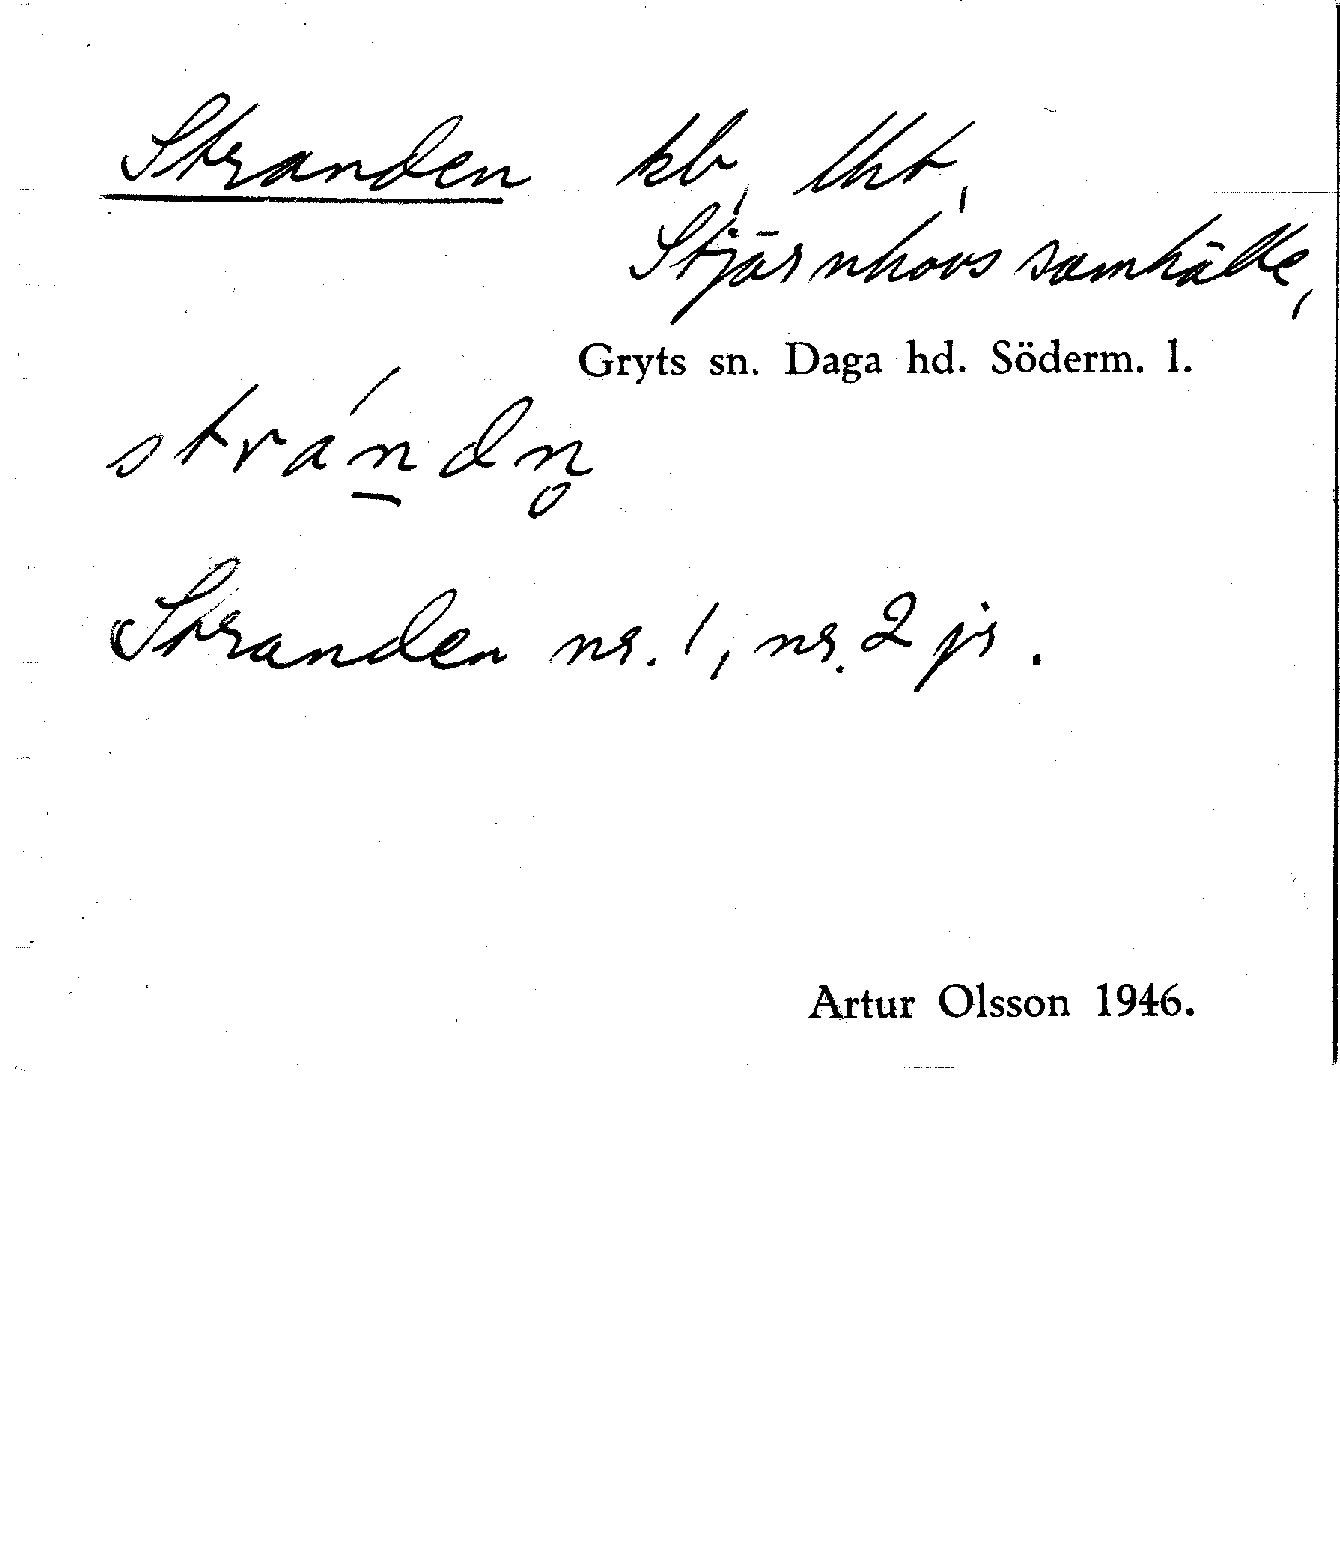 Stranden kb, lht,
Stjärnhovs samhälle,
Gryts sn. Daga hd. Söderm. l.
strá́n̠dn̥
Stranden nr. 1, nr. 2 jr.
Artur Olsson 1946.